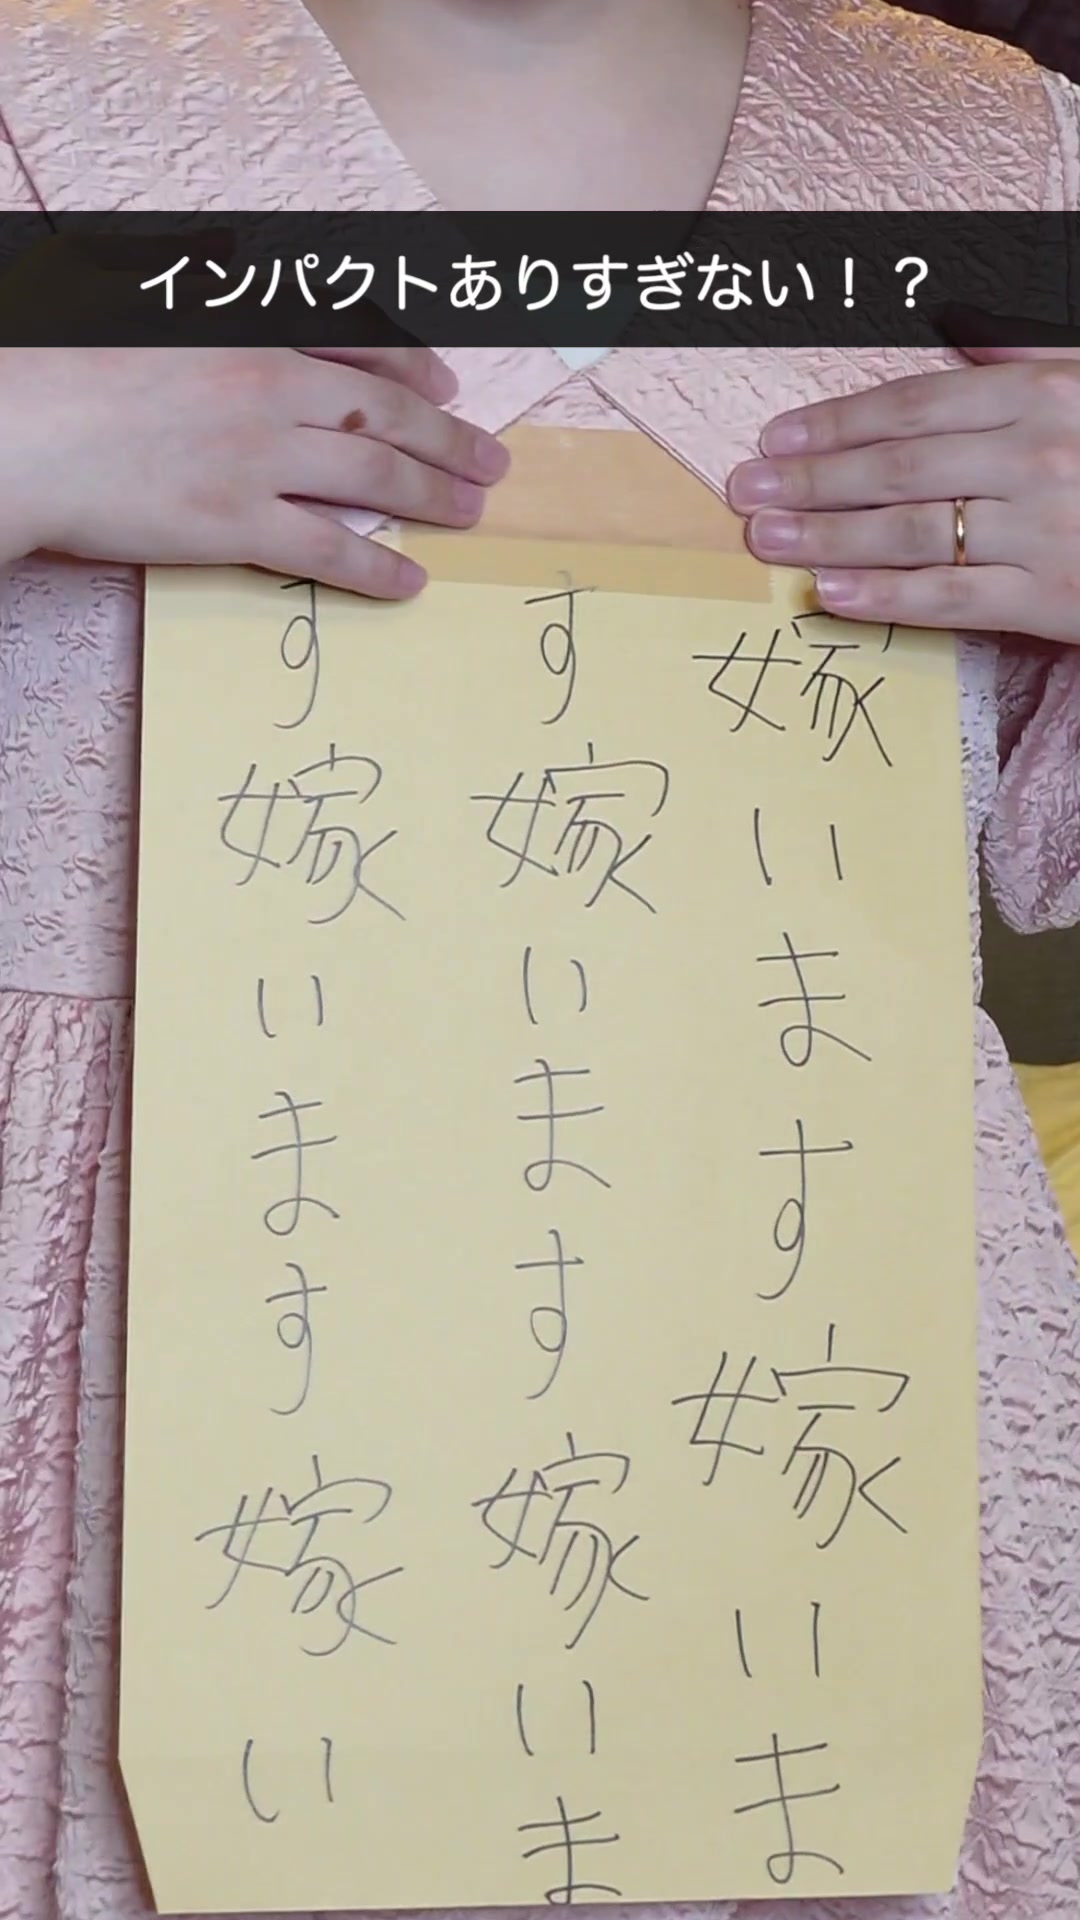 インパクトありすぎない！？
嫁います嫁いま
す嫁います嫁いま
す嫁います嫁い